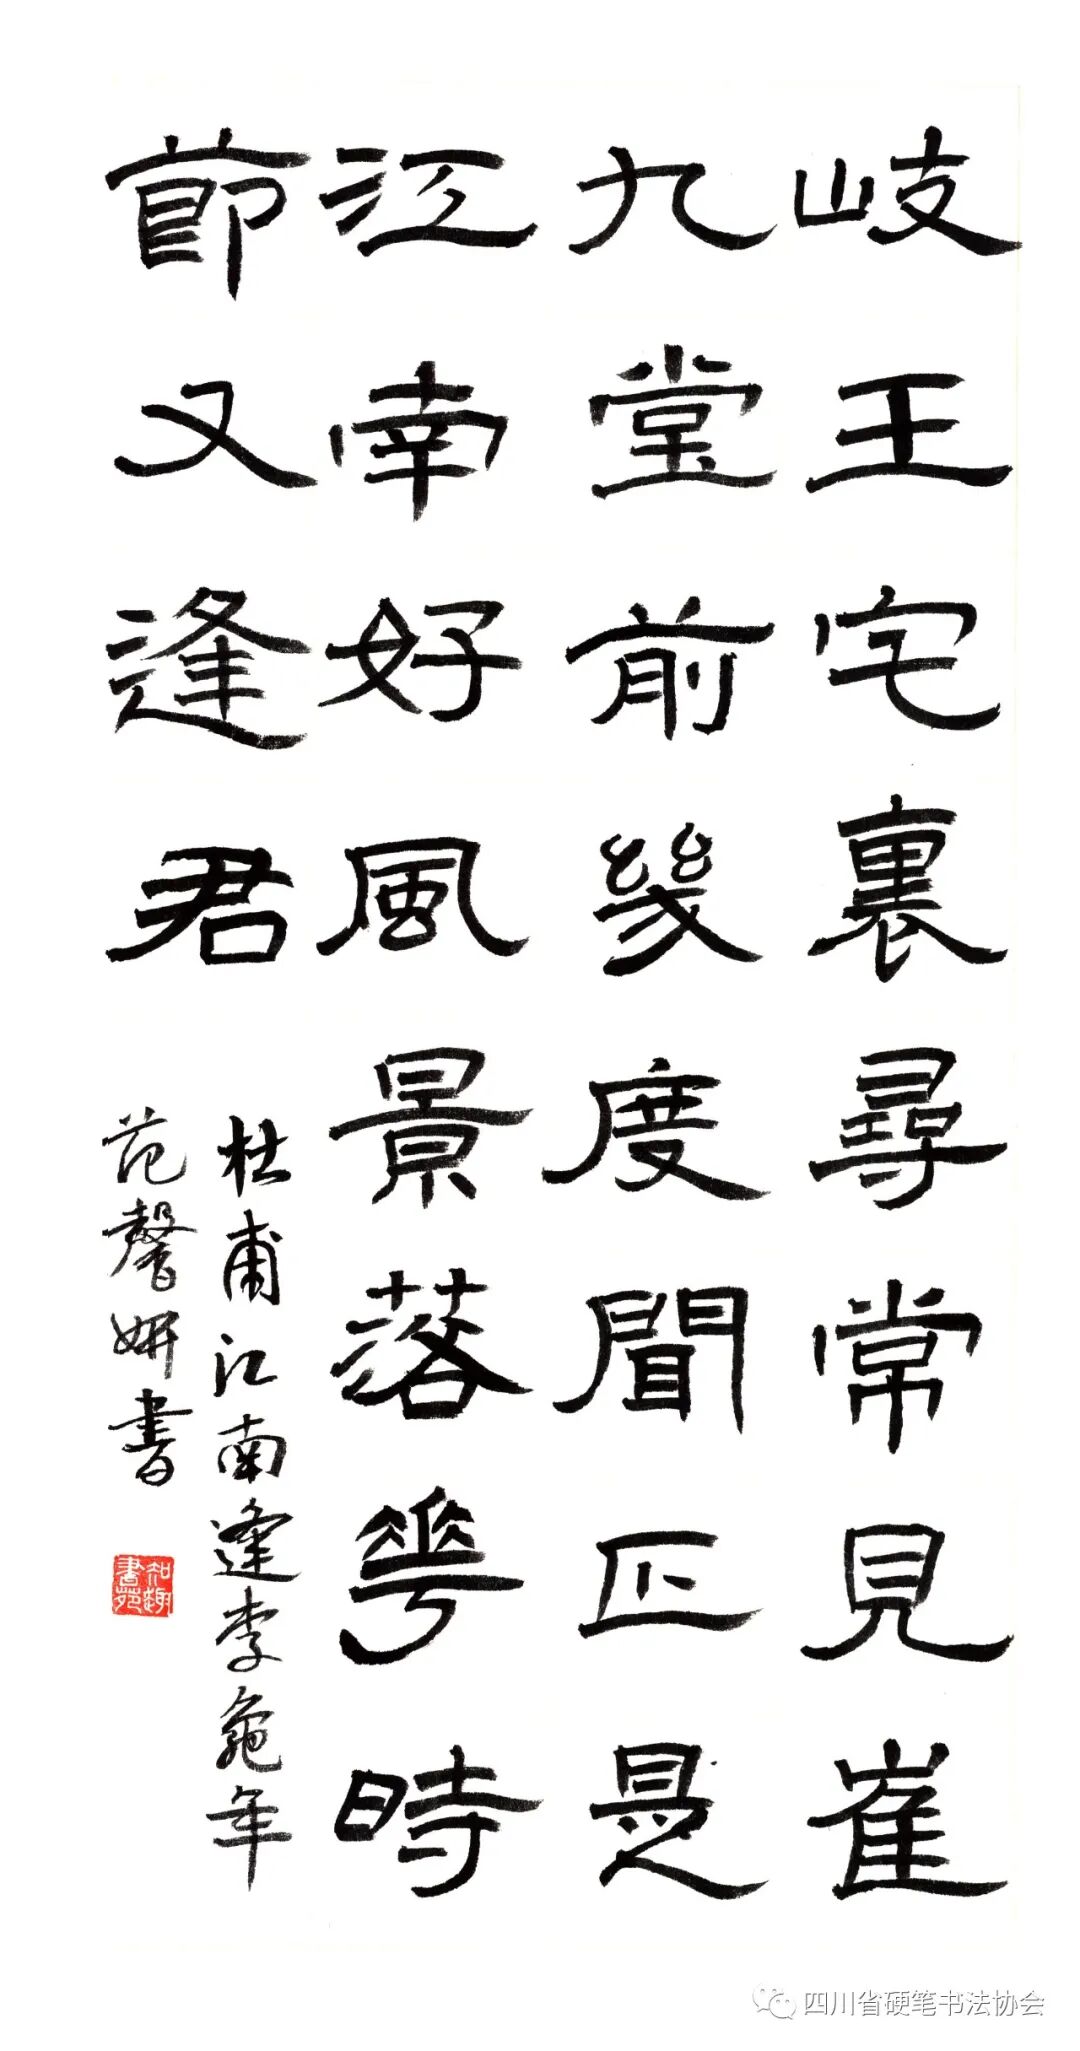 岐王宅裏尋常見崔
九堂前幾度聞正是
江南好風景落花時
節又逢君
杜甫江南逢李龜年
范馨妍書
知趣書苑
四川省硬笔书法协会